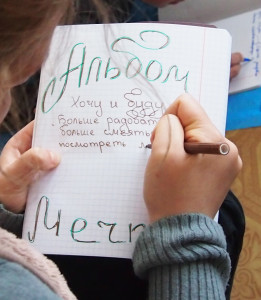 Альбом
Хочу и буду
Больше радоват
больше смеять
посмотреть
Меч